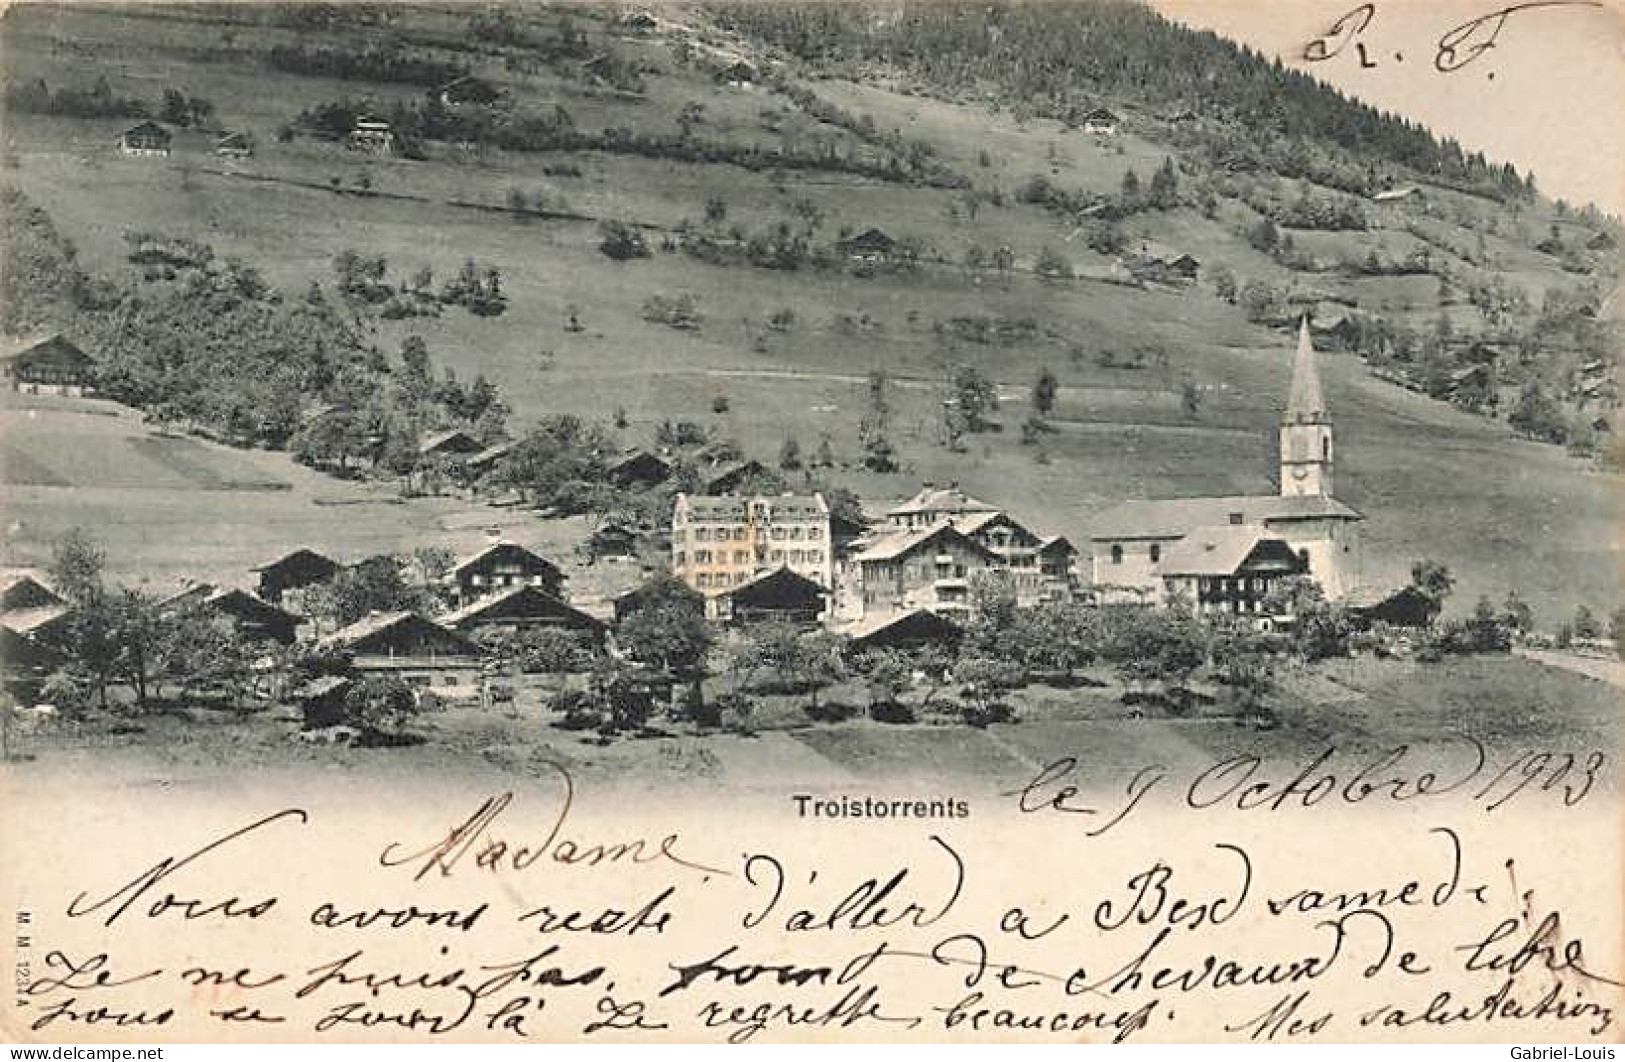 R. F.
Troistorrents
le 9 Octobre 1903
Madame
Nous avons reçté d'aller a Bex samedi.
Je ne puis pas, point de chevaux de libre
pour se jour là Je regrette beaucoup. Mes salutations
M. M. 123 A
delcampe.net
Gabriel-Louis